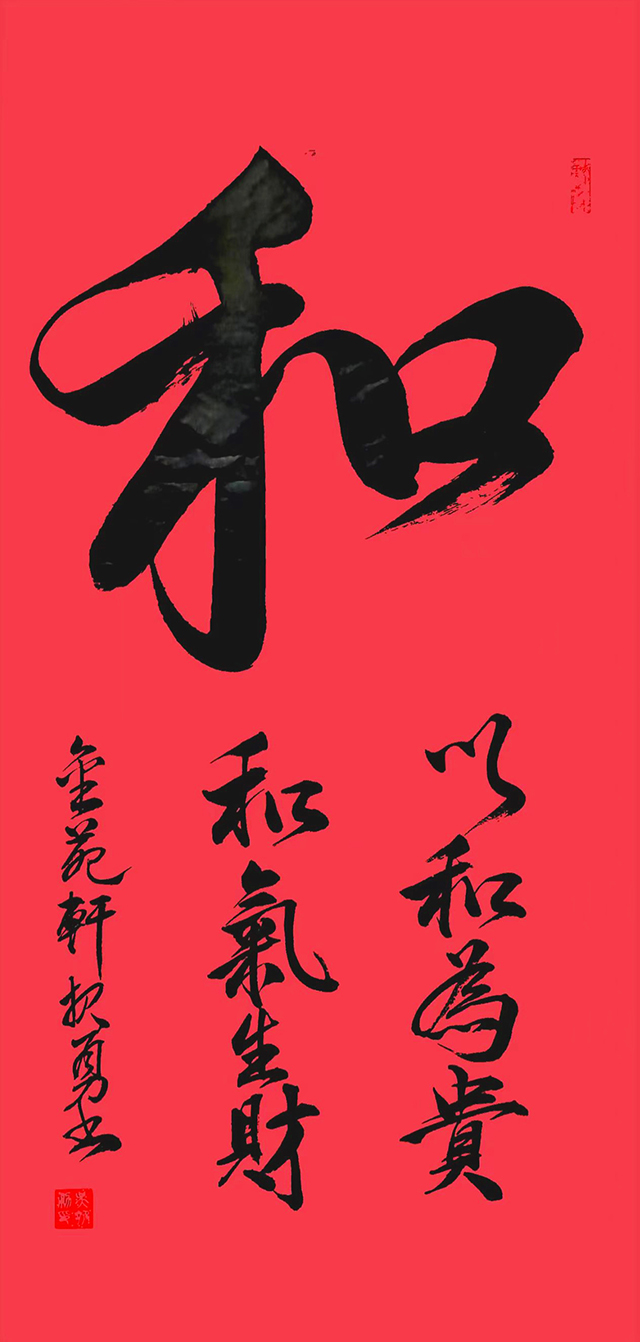 和
以和為貴
和氣生財
金苑軒 勇书